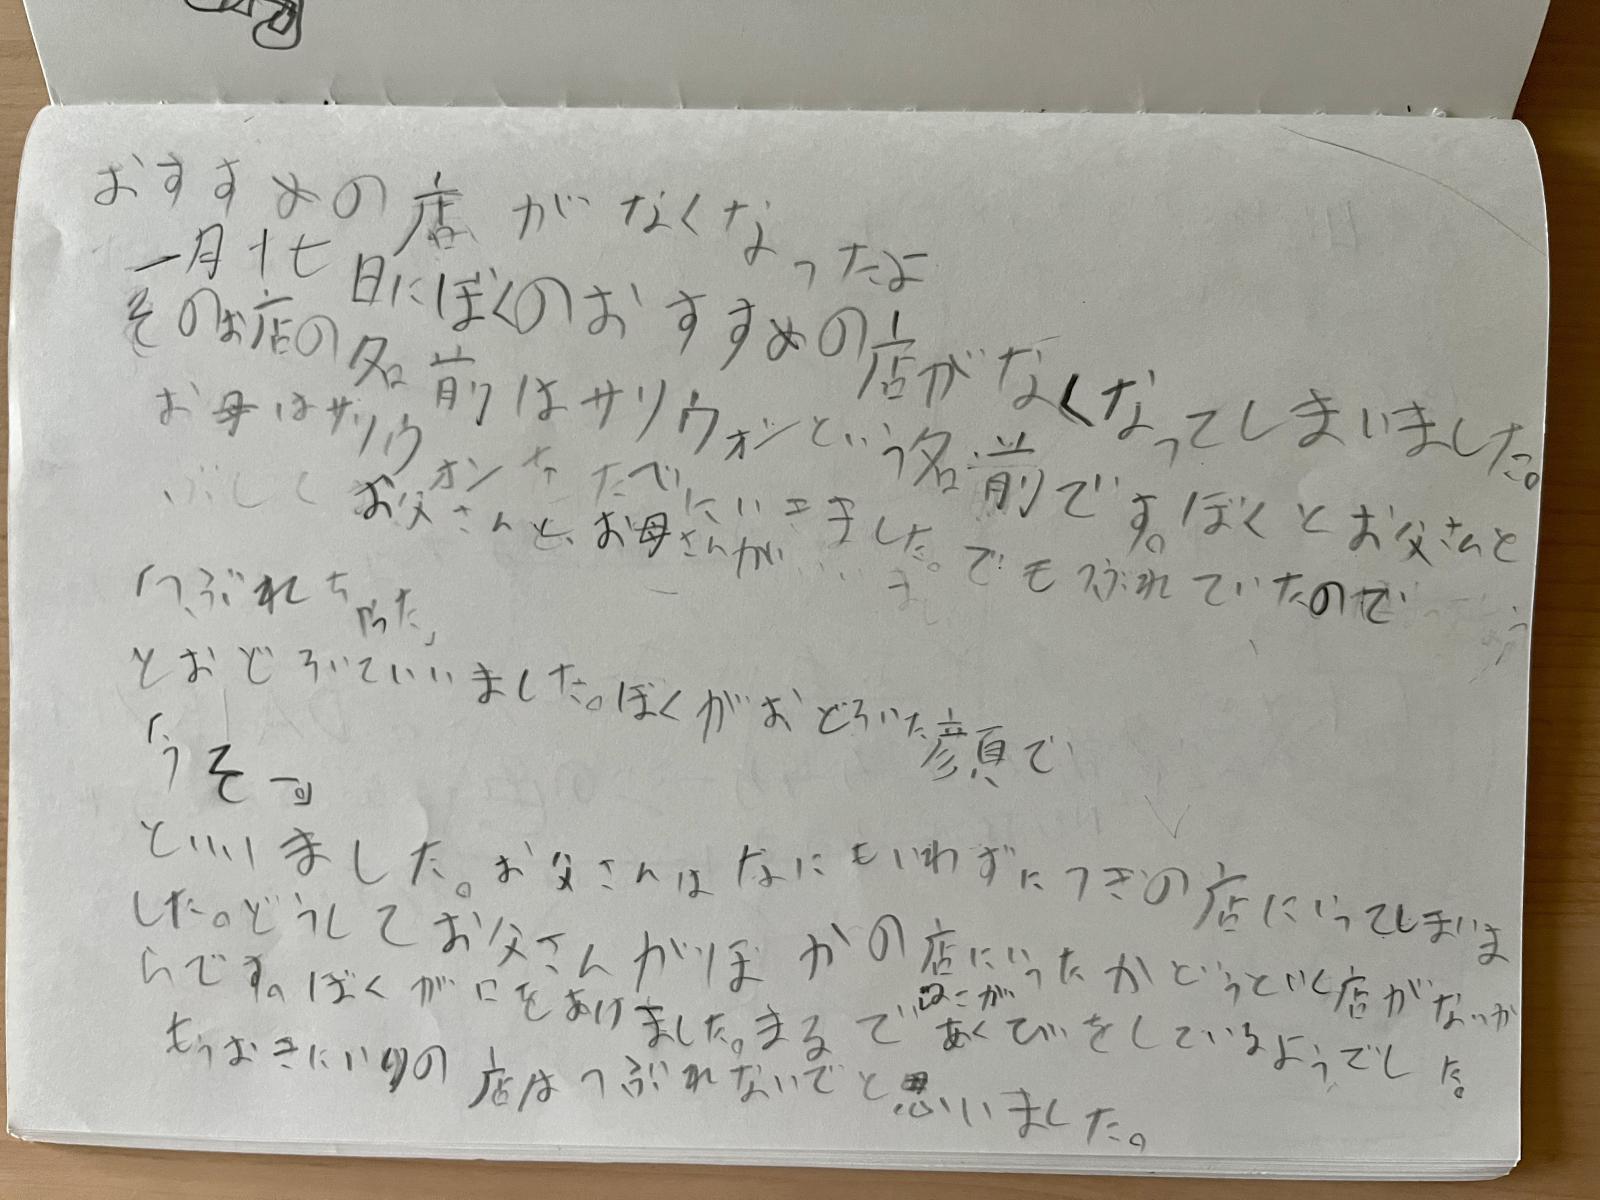 おすすめの店がなくなったよ
一月十七日にぼくのおすすめの店がなくなってしまいました。
そのお店の名前はサリウォンという名前です。ぼくとお父さんと
お母はサリウォンをたべにいきました。でもつぶれていたので
お父さんと、お母さんが
「つぶれちゃった」
とおどろいていいました。ぼくがおどろいた顔で
「うそー。」
といいました。お父さんはなにもいわずにつぎの店にいってしまいま
した。どうしてお父さんがほかの店にいったかどうといく店がないか
らです。ぼくが口をあけました。まるでわにがあくびをしているようでした。
もうおきにいりの店はつぶれないでと思いました。